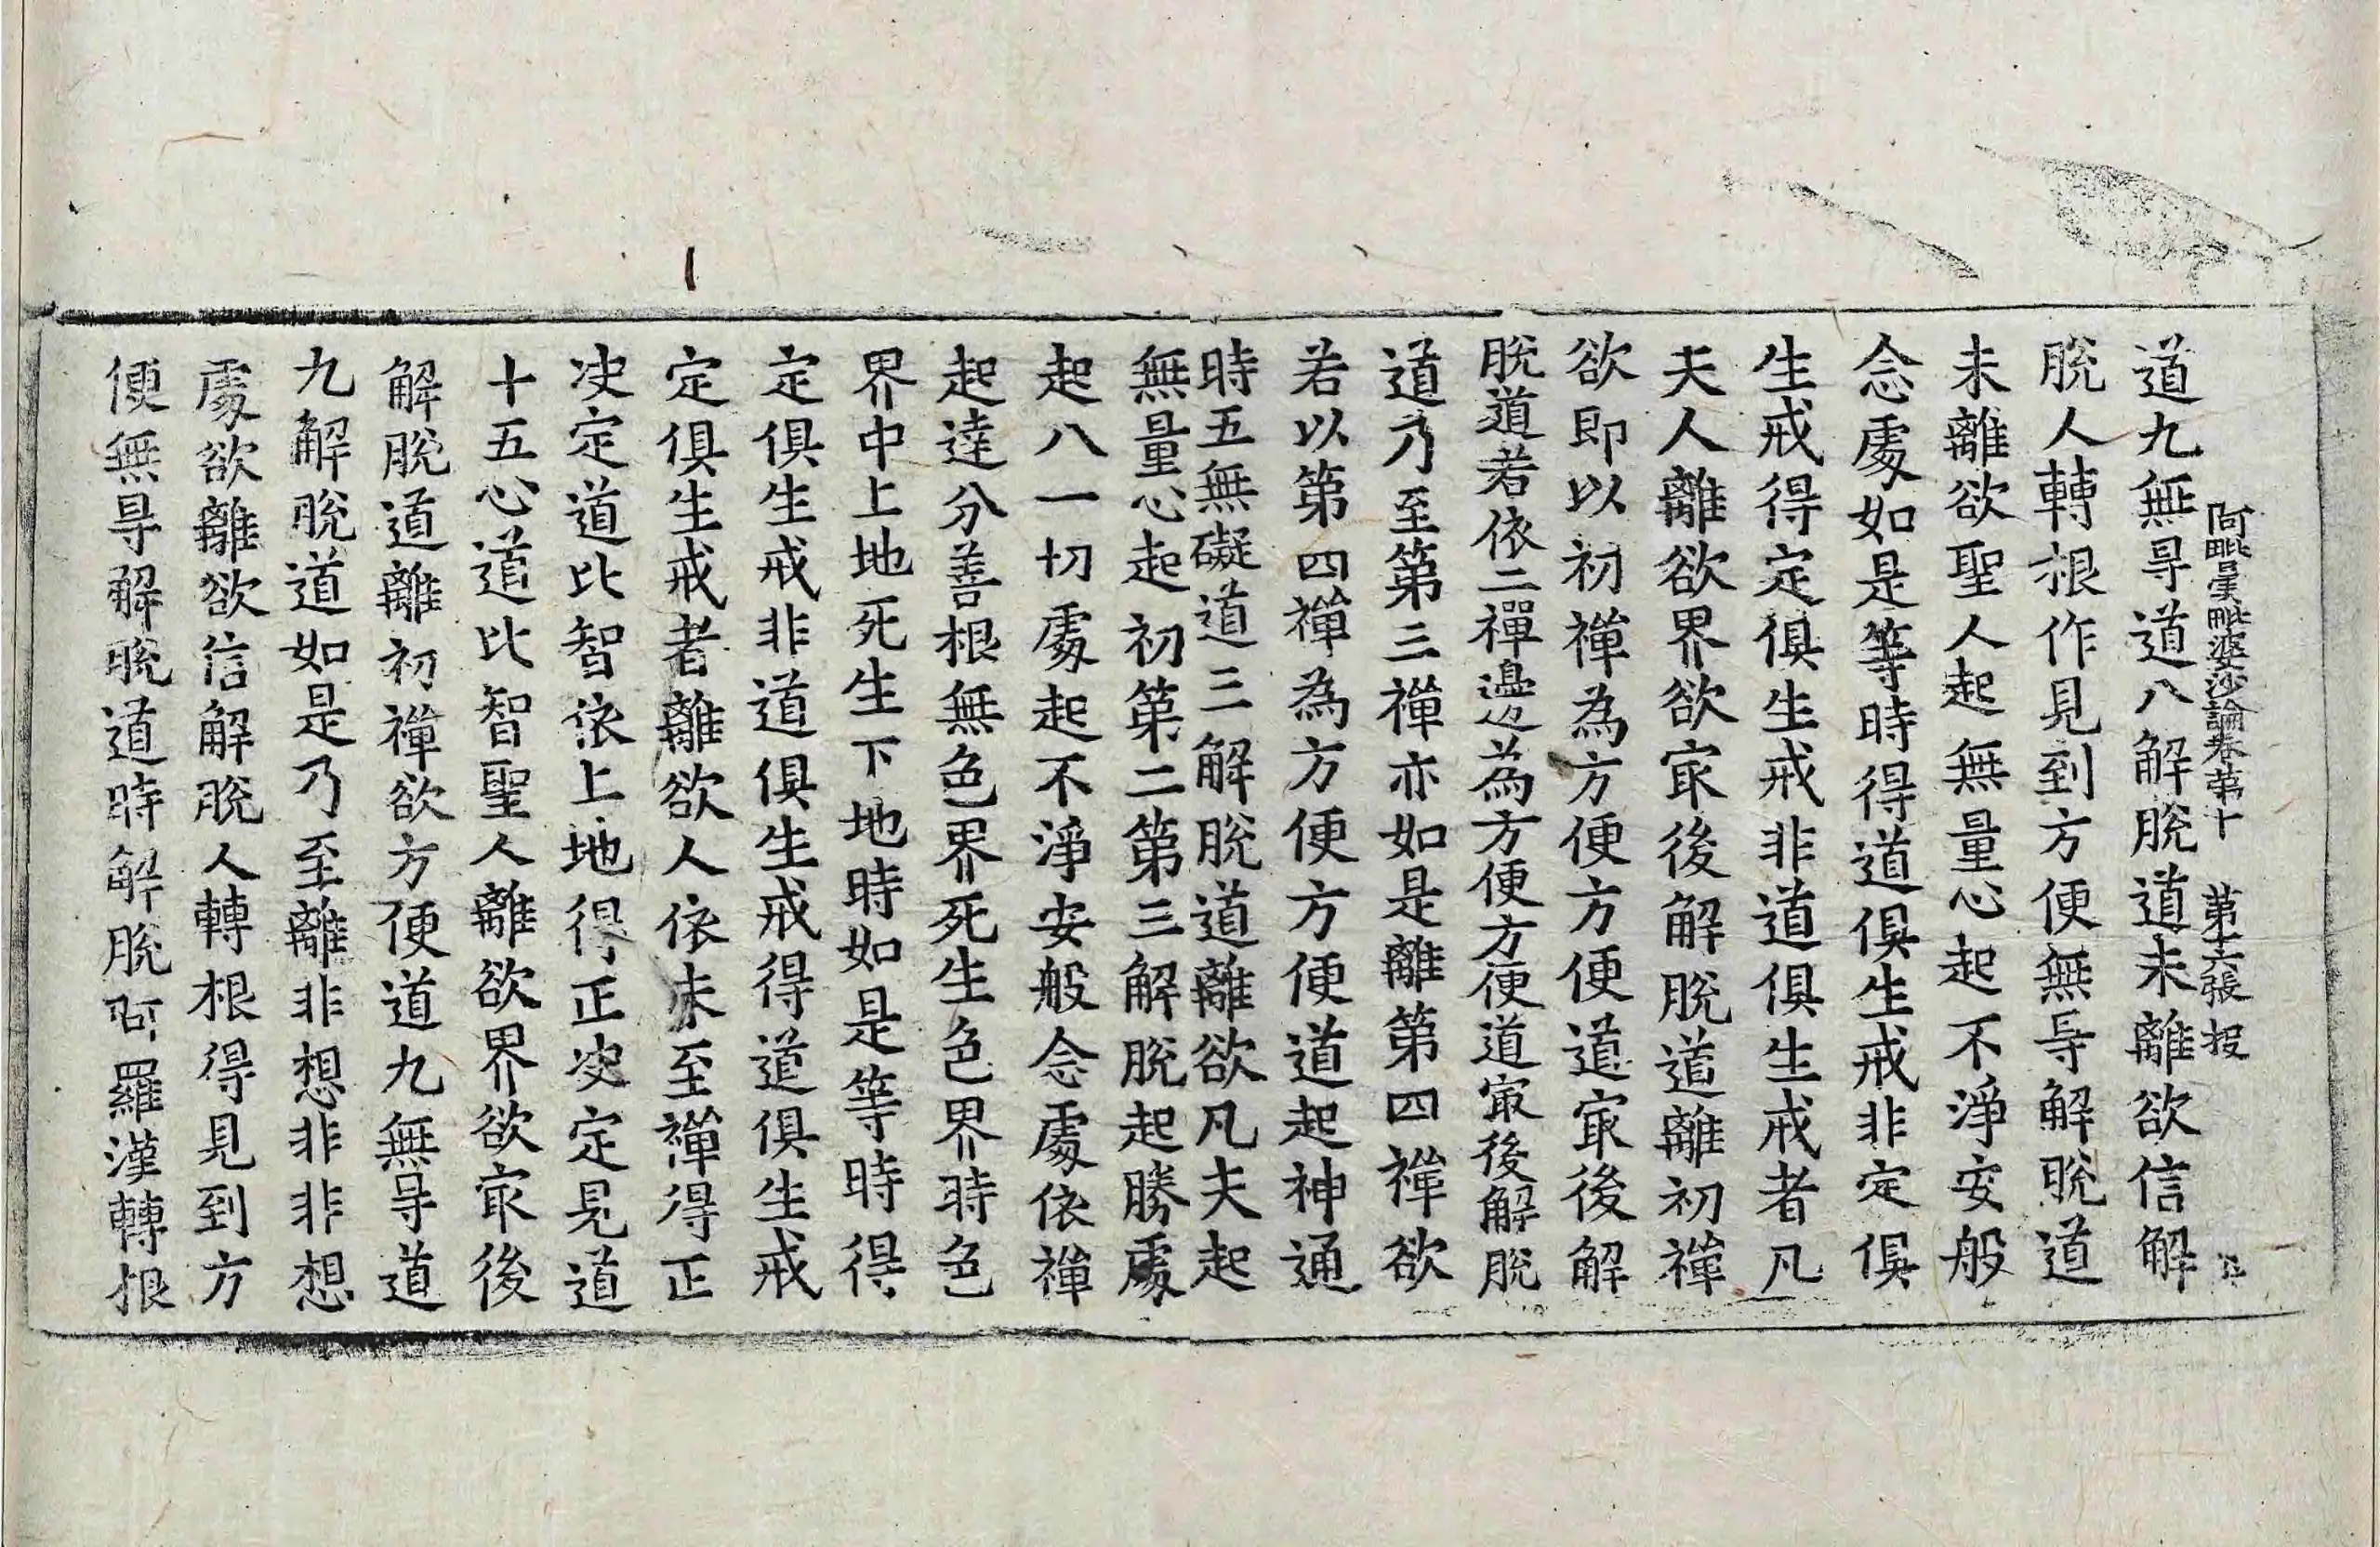 阿毗曇毗婆沙論卷第十　第十六張　投
道九無㝵道八解脫道未離欲信解
脫人轉根作見到方便無㝵解脫道
未離欲聖人起無量心起不淨安般
念處如是等時得道俱生戒非定俱
生戒得定俱生戒非道俱生戒者凡
夫人離欲界欲㝡後解脫道離初禪
欲即以初禪為方便方便道㝡後解
脫道若依二禪邊為方便方便道㝡後解脫
道乃至第三禪亦如是離第四禪欲
若以第四禪為方便方便道起神通
時五無礙道三解脫道離欲凡夫起
無量心起初第二第三解脫起勝處
起八一切處起不淨安般念處依禪
起達分善根無色界死生色界時色
界中上地死生下地時如是等時得
定俱生戒非道俱生戒得道俱生戒
定俱生戒者離欲人依未至禪得正
决定道比智依上地得正决定見道
十五心道比智聖人離欲界欲㝡後
解脫道離初禪欲方便道九無㝵道
九解脫道如是乃至離非想非非想
處欲離欲信解脫人轉根得見到方
便無㝵解脫道時解脫阿羅漢轉根